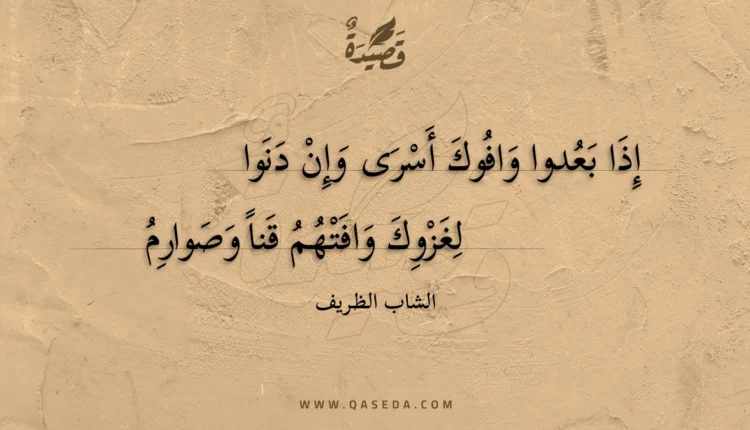 قَصِيدَةٌ
إِذَا بَعُدوا وَافُوكَ أَسْرَى وَإِنْ دَنَوا
لِغَزْوِكَ وَافَتْهُمُ قَناً وَصَوارِمُ
الشاب الظريف
WWW.QASEDA.COM